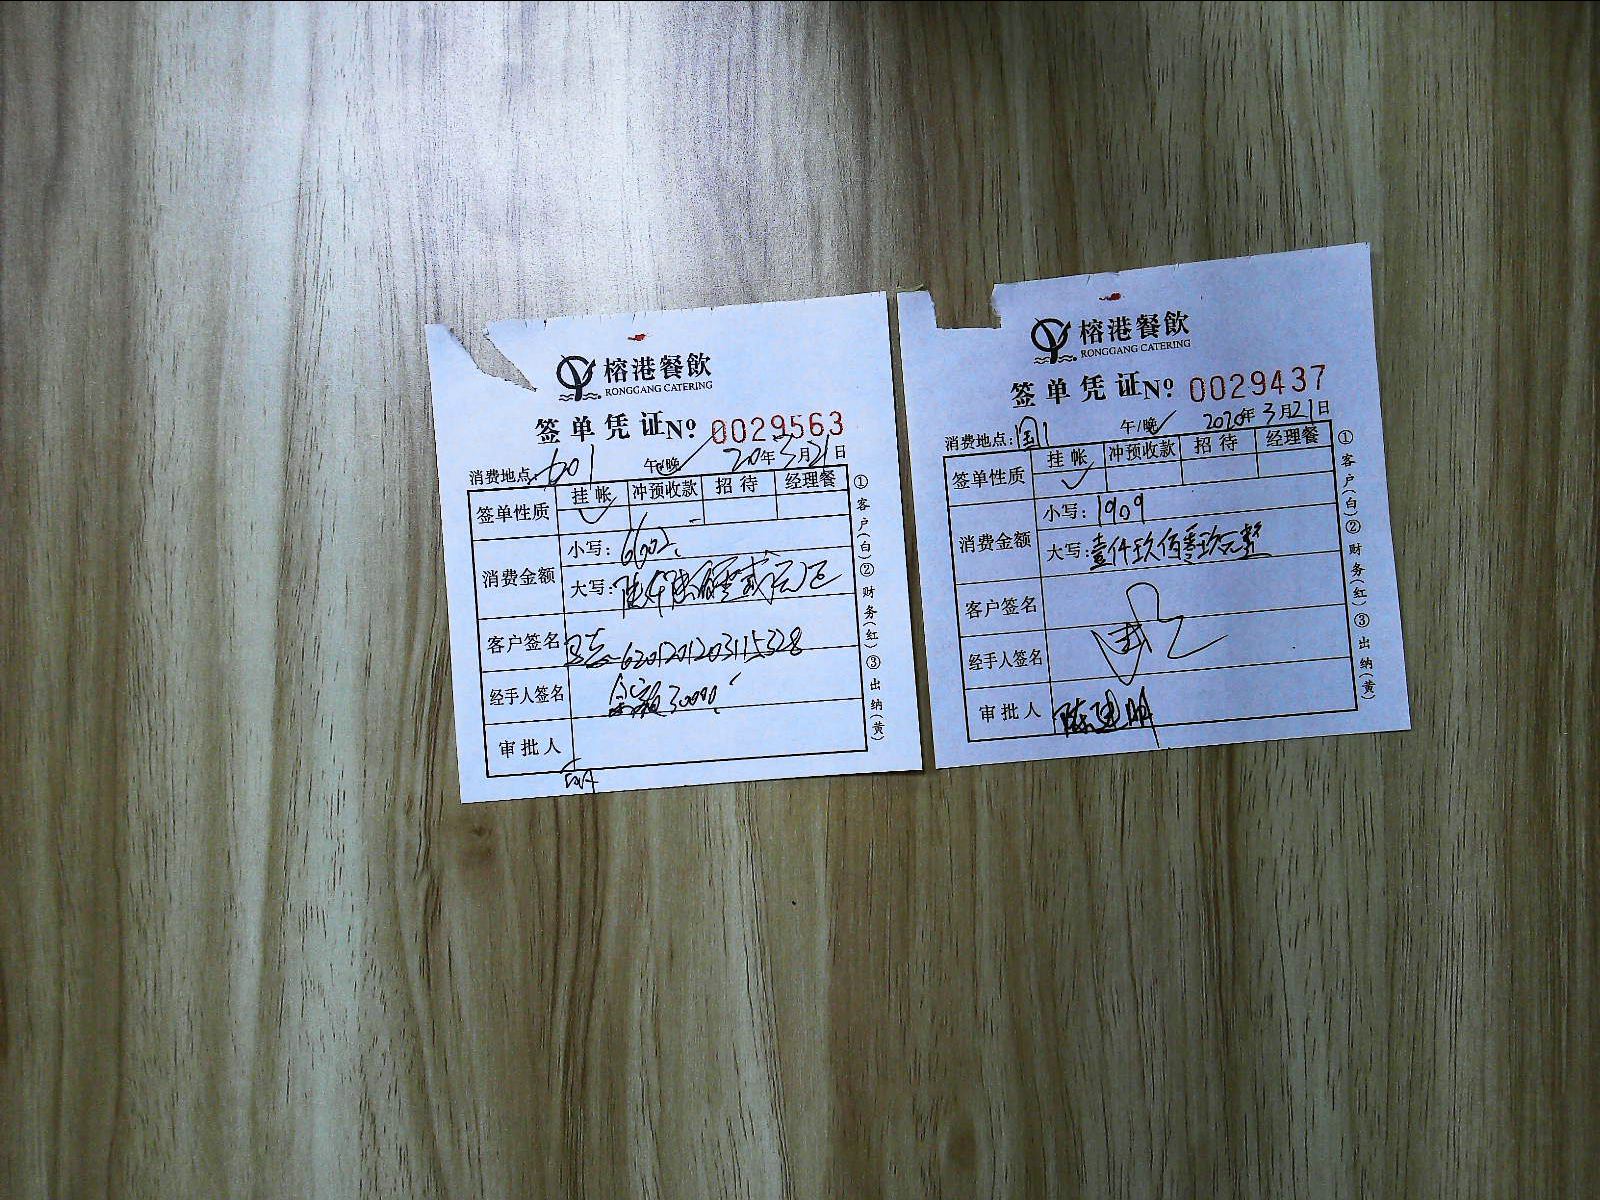 榕港餐飲
RONGGANG CATERING
签单凭证No 0029563
消费地点: 601 午/晚 20年3月21日
签单性质 挂帐 冲预收款 招待 经理餐
消费金额
小写: 6602
大写: 陆仟陆佰零贰元正
客户签名 6201201203115328
经手人签名 余额30000
审批人
①客户(白)②财务(红)③出纳(黄)
榕港餐飲
RONGGANG CATERING
签单凭证No 0029437
消费地点: 国1 午/晚 2020年3月21日
签单性质 挂帐 冲预收款 招待 经理餐
消费金额
小写: 1909
大写: 壹仟玖佰零玖元整
客户签名
经手人签名
审批人 陈建明
①客户(白)②财务(红)③出纳(黄)